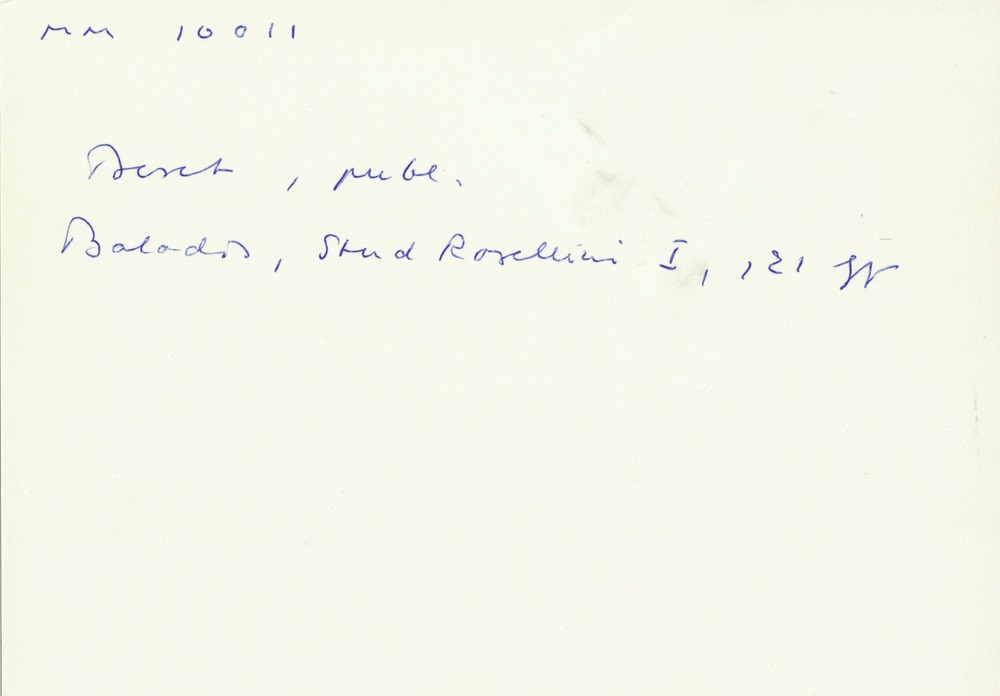 MM 10011
Beset, publ.
Baladis, Stud Rosellini I, 121 ff